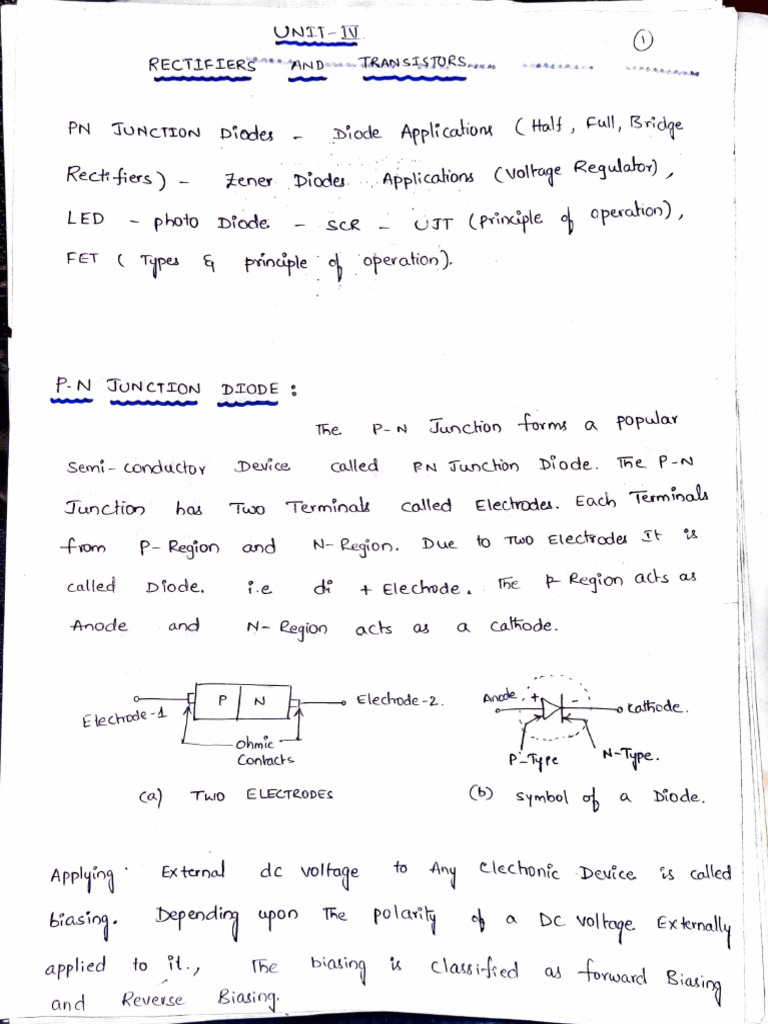 UNIT-IV
1
RECTIFIERS AND TRANSISTORS
PN JUNCTION Diodes - Diode Applications (Half, Full, Bridge
Rectifiers) - Zener Diodes Applications (Voltage Regulator),
LED - photo Diode - SCR - UJT (Principle of operation),
FET ( Types & principle of operation).
P-N JUNCTION DIODE :
The P-N Junction forms a popular
Semi-conductor Device called PN Junction Diode. The P-N
Junction has Two Terminals called Electrodes. Each Terminals
from P-Region and N-Region. Due to Two Electrodes It is
called Diode. i.e di + Electrode. The P Region acts as
Anode and N-Region acts as a cathode.
Electrode-1 P N Electrode-2.
Ohmic Contacts
Anode + - Kathode.
P-Type N-Type.
(a) TWO ELECTRODES
(b) Symbol of a Diode.
Applying External dc voltage to Any Electronic Device is called
biasing. Depending upon The polarity of a DC voltage Externally
applied to it., The biasing is classified as forward Biasing
and Reverse Biasing.